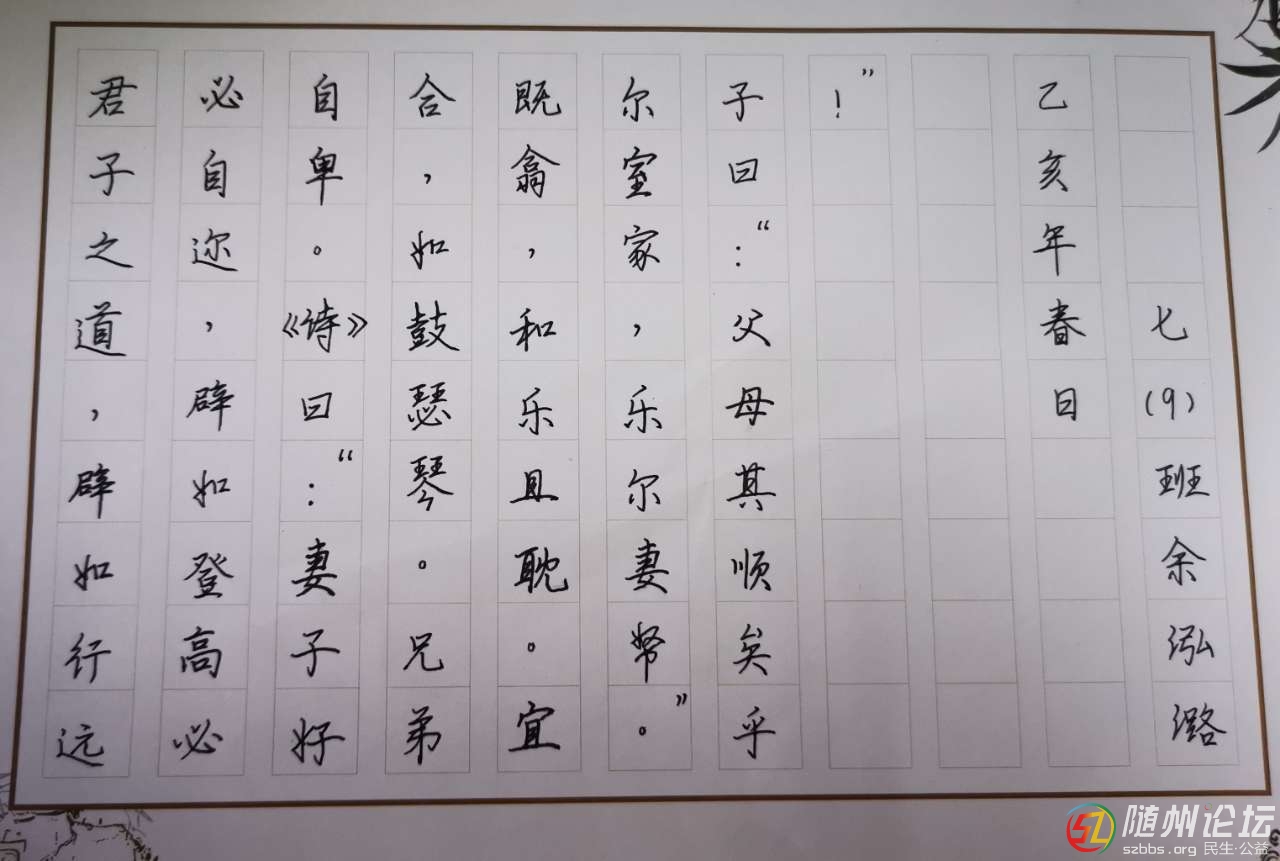 君子之道，辟如行远
必自迩，辟如登高必
自卑。《诗》曰：“妻子好
合，如鼓瑟琴。兄弟
既翕，和乐且耽。宜
尔室家，乐尔妻帑。”
子曰：“父母其顺矣乎
！”
乙亥年春日
七(9)班余泓潞
随州论坛
szbbs.org 民生·公益